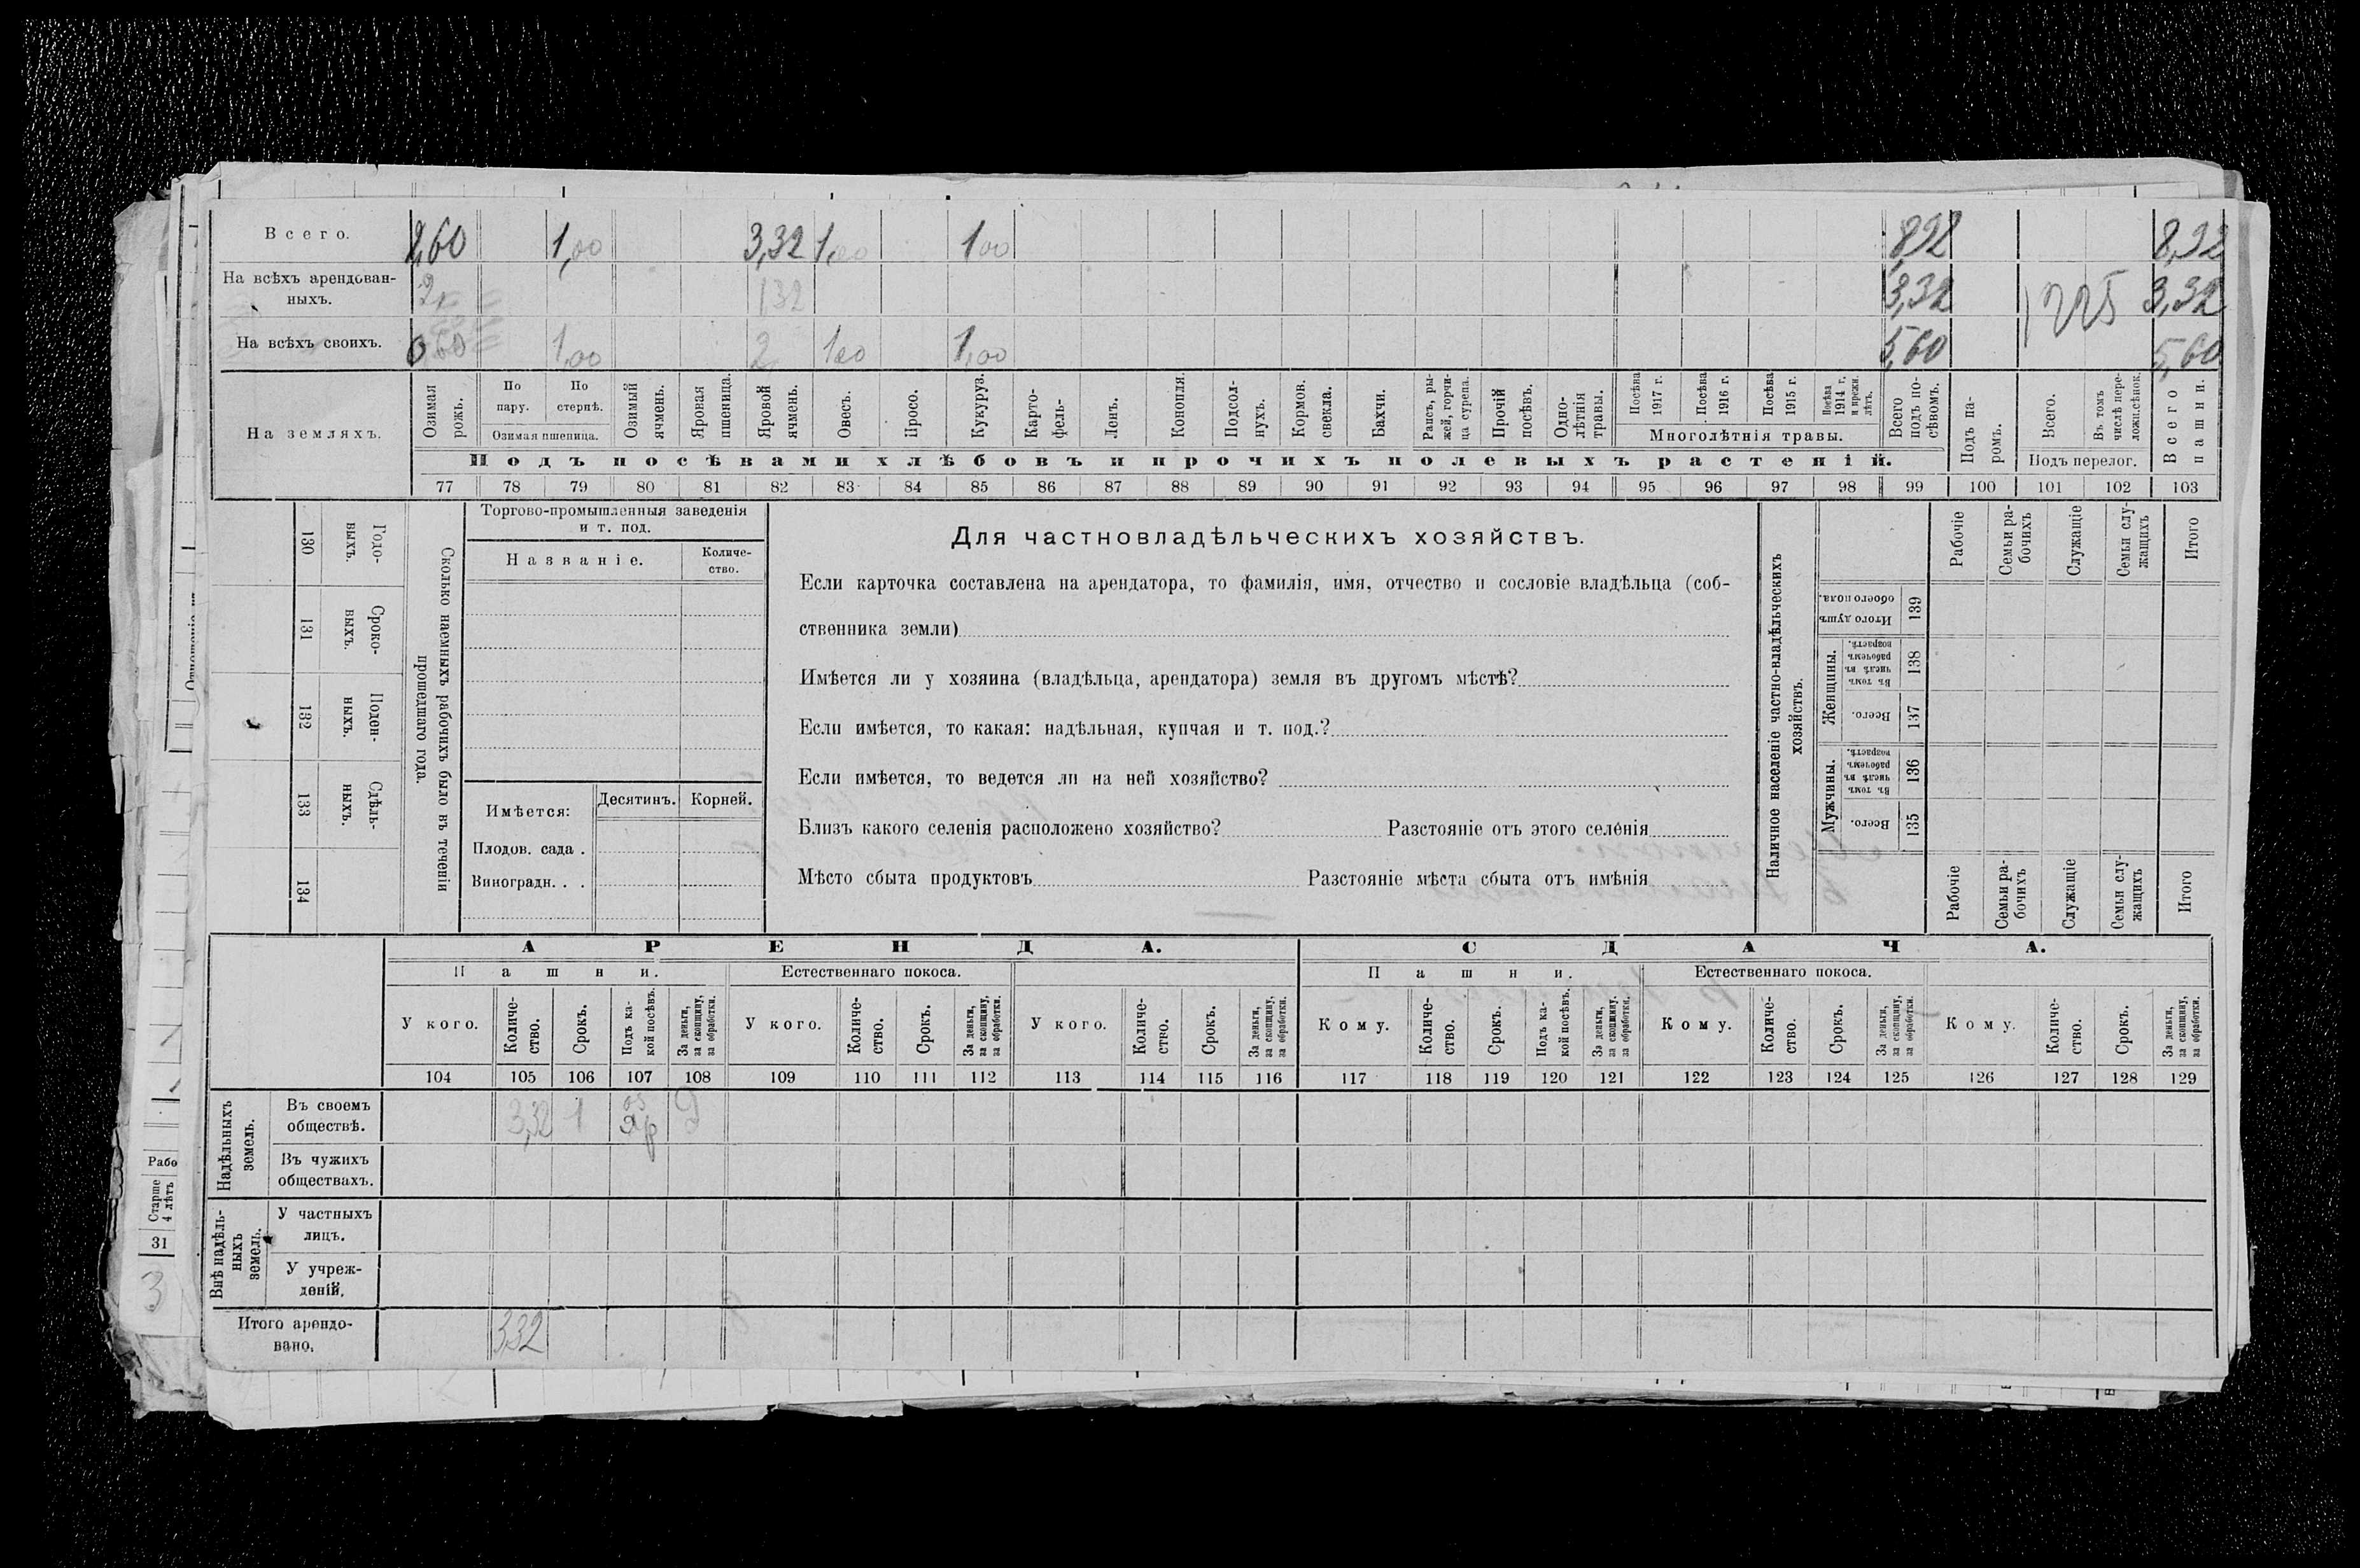 Всего. 2,60 1,00 3,32 1,00 1 00 8,92 8,92
На всѣхъ арендован-
ныхъ. 2 132 3,32 3,32
На всѣхъ своихъ. 0,60 1,00 2 1.00 1,00 5,60 5,60
1225
На земляхъ.
Озимая
рожь.
По
пару.
По
стернѣ.
Озимая пшеница.
Озимый
ячмень.
Яровая
пшеница.
Яровой
ячмень.
Овесъ.
Просо.
Кукуруза.
Карто-
фель-
Ленъ.
Конопля.
Подсол-
нухъ.
Кормов.
свекла.
Бахчи.
Рапсъ, ры-
жей, горчи-
ца сурепа.
Прочій
посѣвъ.
Одно-
лѣтнія
травы.
Посѣва
1917 г.
Посѣва
1916 г.
Посѣва
1915 г.
Посѣва
1914 г.
и прежн.
лѣтъ.
Многолѣтнія травы.
Всего
подъ по-
сѣвомъ.
Подъ посѣвами хлѣбовъ и прочихъ полевыхъ растеній.
Подъ па-
ромъ.
Всего.
Въ томъ
числѣ пере-
лож.сѣнок.
Подъ перелог.
Всего
пашни.
77 78 79 80 81 82 83 84 85 86 87 88 89 90 91 92 93 94 95 96 97 98 99 100 101 102 103
130
Годо-
выхъ.
131
Сроко-
выхъ.
132
Поден-
ныхъ.
133
Сдѣль-
ныхъ.
134
Сколько наемныхъ рабочихъ было въ теченіи
прошедшаго года.
Торгово-промышленныя заведенія
и т. под.
Названіе.
Количе-
ство.
Имѣется:
Десятинъ. Корней.
Плодов. сада .
Виноградн. . .
Для частновладѣльческихъ хозяйствъ.
Если карточка составлена на арендатора, то фамилія, имя, отчество и сословіе владѣльца (соб-
ственника земли)
Имѣется ли у хозяина (владѣльца, арендатора) земля въ другомъ мѣстѣ?
Если имѣется, то какая: надѣльная, купчая и т. под.?
Если имѣется, то ведется ли на ней хозяйство?
Близъ какого селенія расположено хозяйство? Разстояніе отъ этого селенія
Мѣсто сбыта продуктовъ Разстояніе мѣста сбыта отъ имѣнія
Наличное населеніе частно-владѣльческихъ
хозяйствъ.
Рабочіе
Семьи ра-
бочихъ
Служащіе
Семьи слу-
жащихъ
Итого
Итого душъ
обоего пола.
139
Женщины.
Въ томъ
числѣ въ
рабочемъ
возрастѣ.
138
Всего.
137
Мужчины.
Въ томъ
числѣ въ
рабочемъ
возрастѣ.
136
Всего.
135
Рабочіе
Семьи ра-
бочихъ
Служащіе
Семьи слу-
жащихъ
Итого
АРЕНДА. СДАЧА.
Пашни. Естественнаго покоса. Пашни. Естественнаго покоса.
У кого.
Количе-
ство.
Срокъ.
Подъ ка-
кой посѣвъ.
За деньги,
за скопщину,
за обработки.
У кого.
Количе-
ство.
Срокъ.
За деньги,
за скопщину,
за обработки.
У кого.
Количе-
ство.
Срокъ.
За деньги,
за скопщину,
за обработки.
Кому.
Количе-
ство.
Срокъ.
Подъ ка-
кой посѣвъ.
За деньги,
за скопщину.
за обработки.
Кому.
Количе-
ство.
Срокъ.
За деньги,
за скопщину,
за обработки.
Кому.
Количе-
ство.
Срокъ.
За деньги,
за скопщину,
за обработки.
104 105 106 107 108 109 110 111 112 113 114 115 116 117 118 119 120 121 122 123 124 125 126 127 128 129
Надѣльныхъ
земель.
Въ своемъ
обществѣ. 3,32 1 оз яр Д
Въ чужихъ
обществахъ.
Внѣ надѣль-
ныхъ
земель.
У частныхъ
лицъ.
У учреж-
деній.
Итого арендо-
вано. 332
Рабо
Старше
4 лѣтъ
31
3